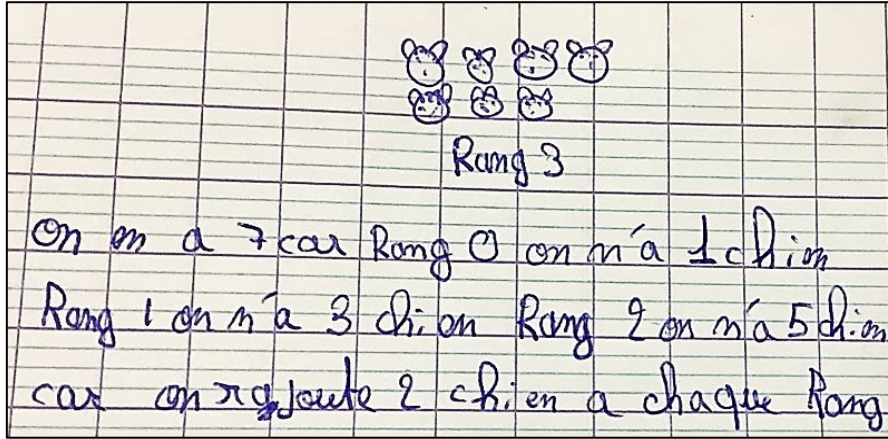 Rang 3
On en a 7 car Rang 0 on n'a 1 chien
Rang 1 on n'a 3 chien Rang 2 on n'a 5 chien
car on rajoute 2 chien a chaque Rang